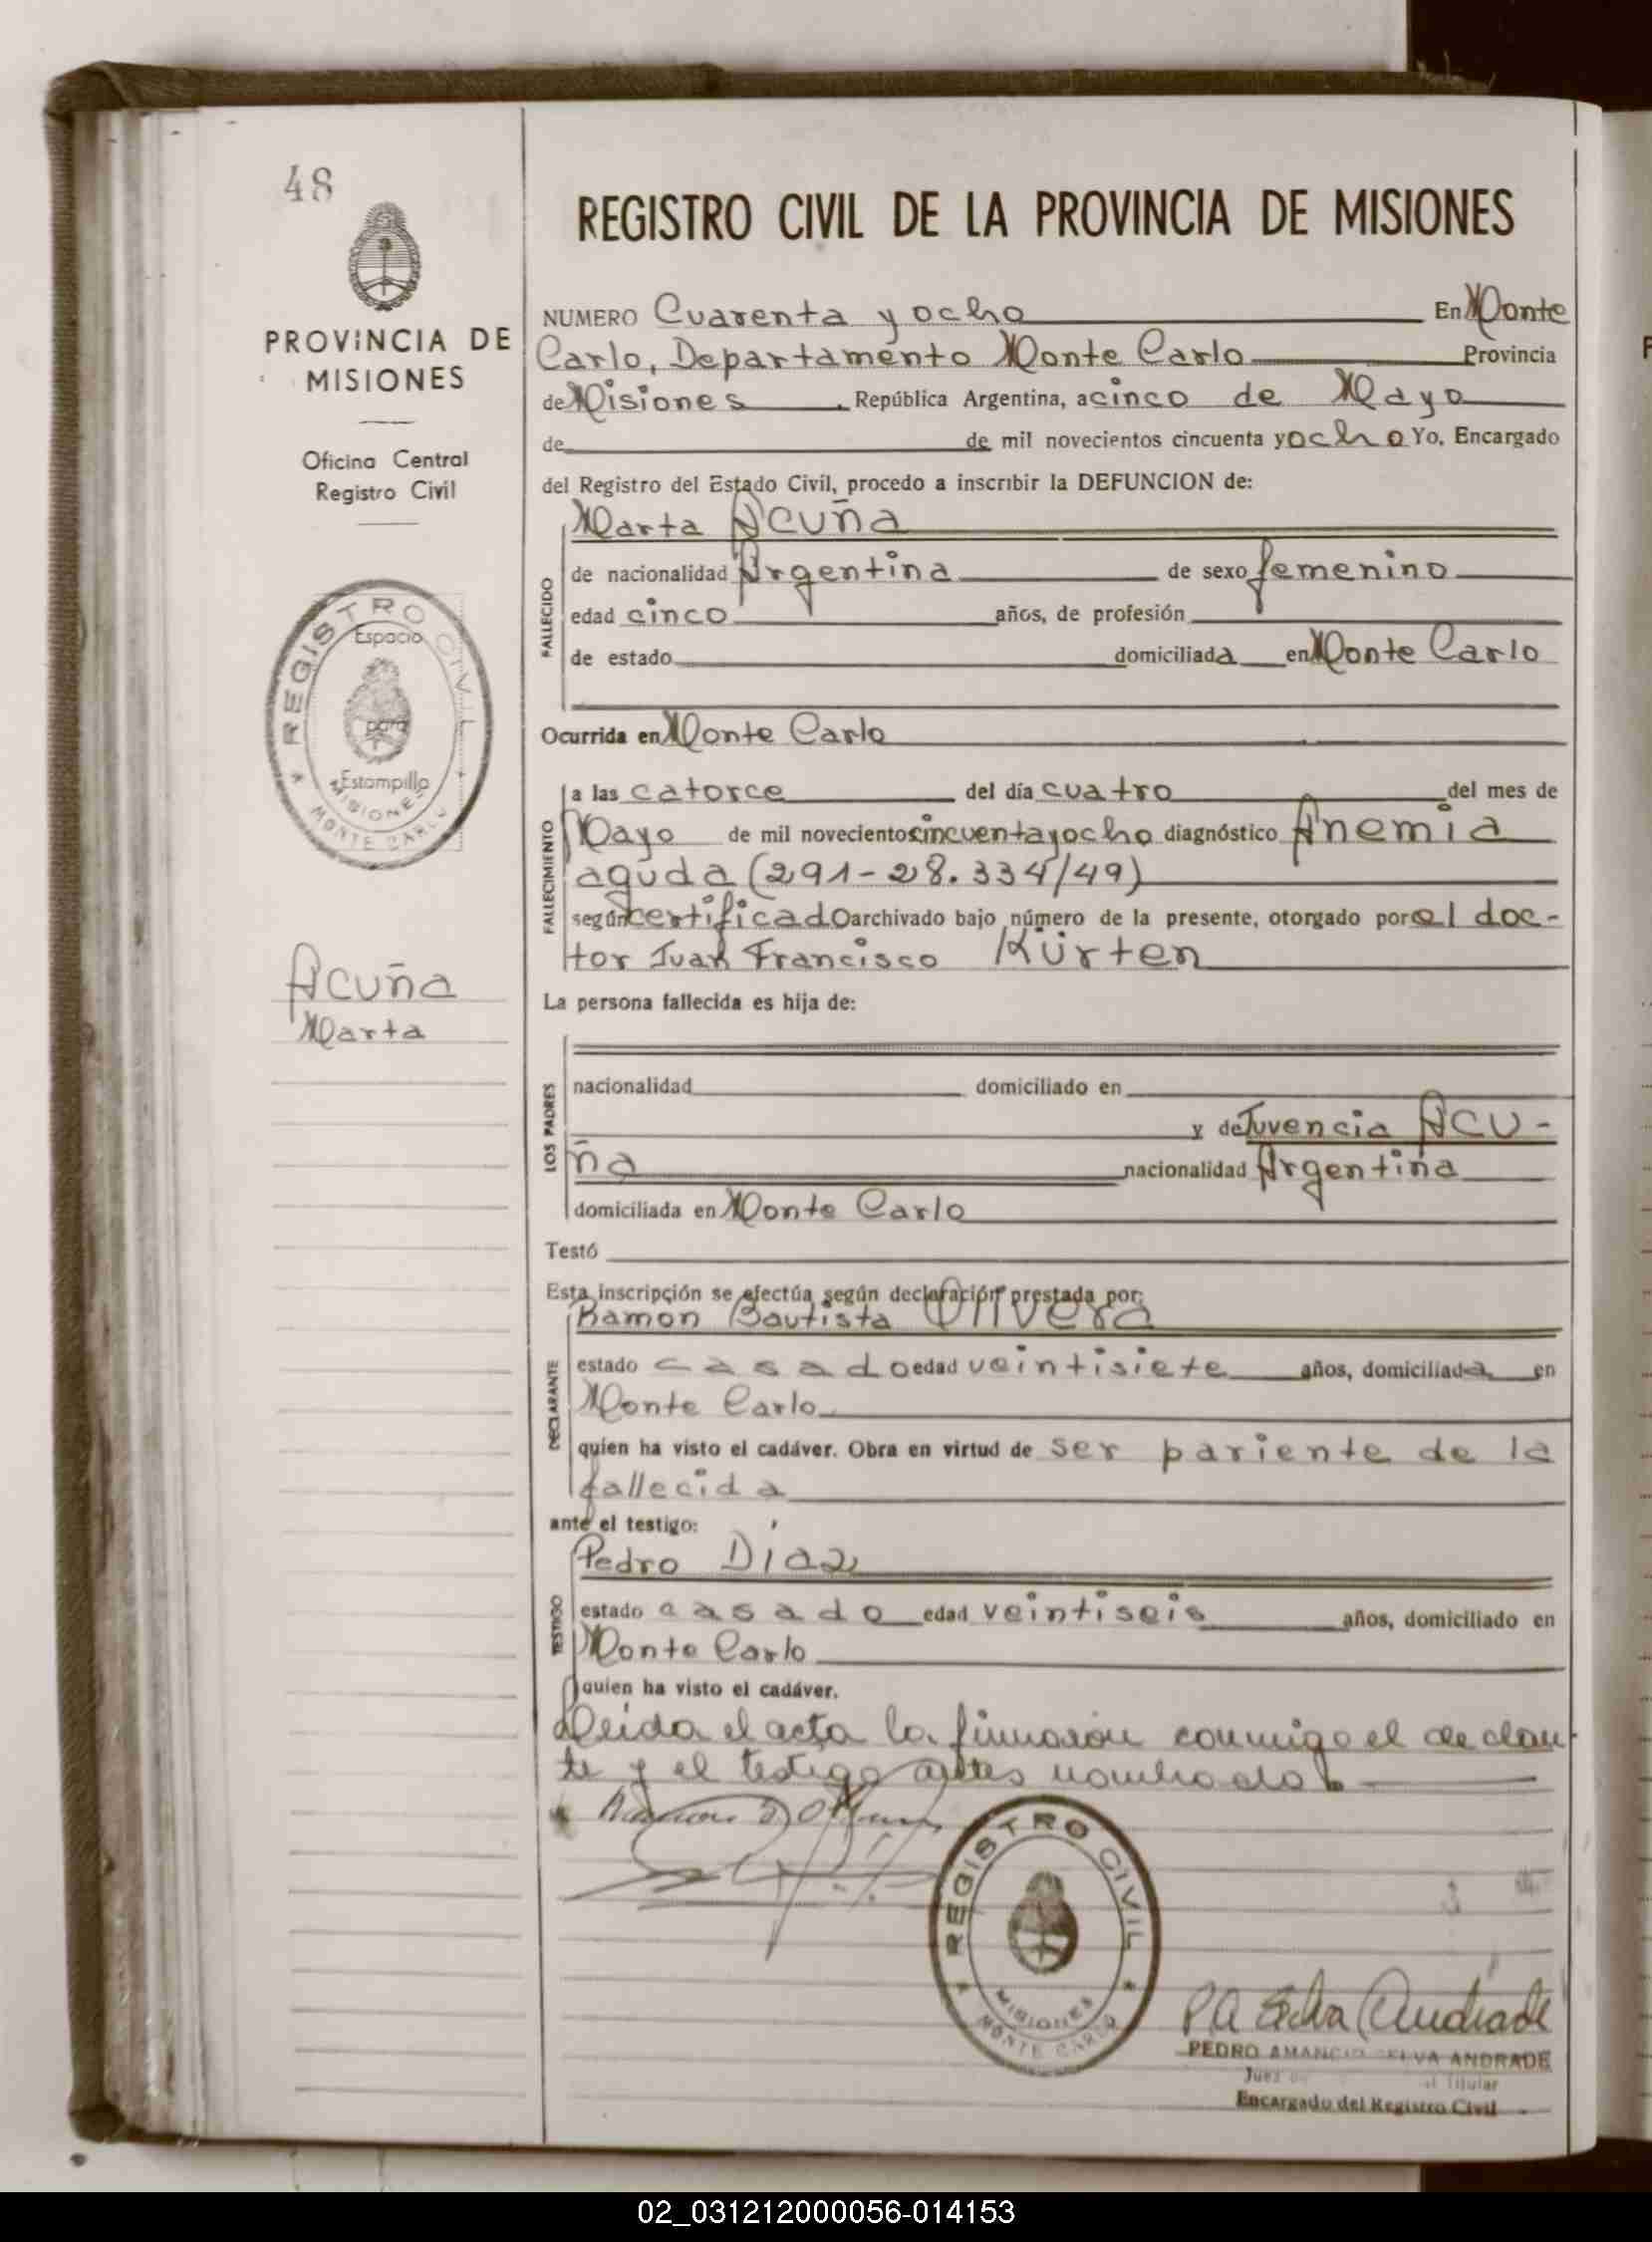 48
PROVINCIA DE
MISIONES
Oficina Central
Registro Civil
REGISTRO CIVIL
Espacio
para
Estampilla
MISIONES
MONTE CARLO
Acuña
Marta
REGISTRO CIVIL DE LA PROVINCIA DE MISIONES
NUMERO Cuarenta y ocho En Monte
Carlo, Departamento Monte Carlo Provincia
de Misiones República Argentina, a cinco de Mayo
de de mil novecientos cincuenta y ocho Yo, Encargado
del Registro del Estado Civil, procedo a inscribir la DEFUNCION de:
FALLECIDO
Marta Acuña
de nacionalidad Argentina de sexo femenino
edad cinco años, de profesión
de estado domiciliada en Monte Carlo
Ocurrida en Monte Carlo
FALLECIMIENTO
a las catorce del día cuatro del mes de
Mayo de mil novecientos cincuenta y ocho diagnóstico Anemia
aguda (291-28.334/49)
según certificado archivado bajo número de la presente, otorgado por el doc-
tor Juan Francisco Kürten
La persona fallecida es hija de:
LOS PADRES
nacionalidad domiciliado en
y de Juvencia ACU-
ña nacionalidad Argentina
domiciliada en Monte Carlo
Testó
Esta inscripción se efectúa según declaración prestada por:
DECLARANTE
Ramon Bautista Olivera
estado casado edad veintisiete años, domiciliada en
Monte Carlo
quien ha visto el cadáver. Obra en virtud de ser pariente de la
fallecida
ante el testigo:
TESTIGO
Pedro Díaz
estado casado edad veintiseis años, domiciliado en
Monte Carlo
quien ha visto el cadáver.
Leida el acta la firmaron conmigo el declaran
te y el testigo antes nombrado
REGISTRO CIVIL
MISIONES
MONTE CARLO
P A Selva Andrade
PEDRO AMANCIO SELVA ANDRADE
Juez Titular
Encargado del Registro Civil
02_031212000056-014153